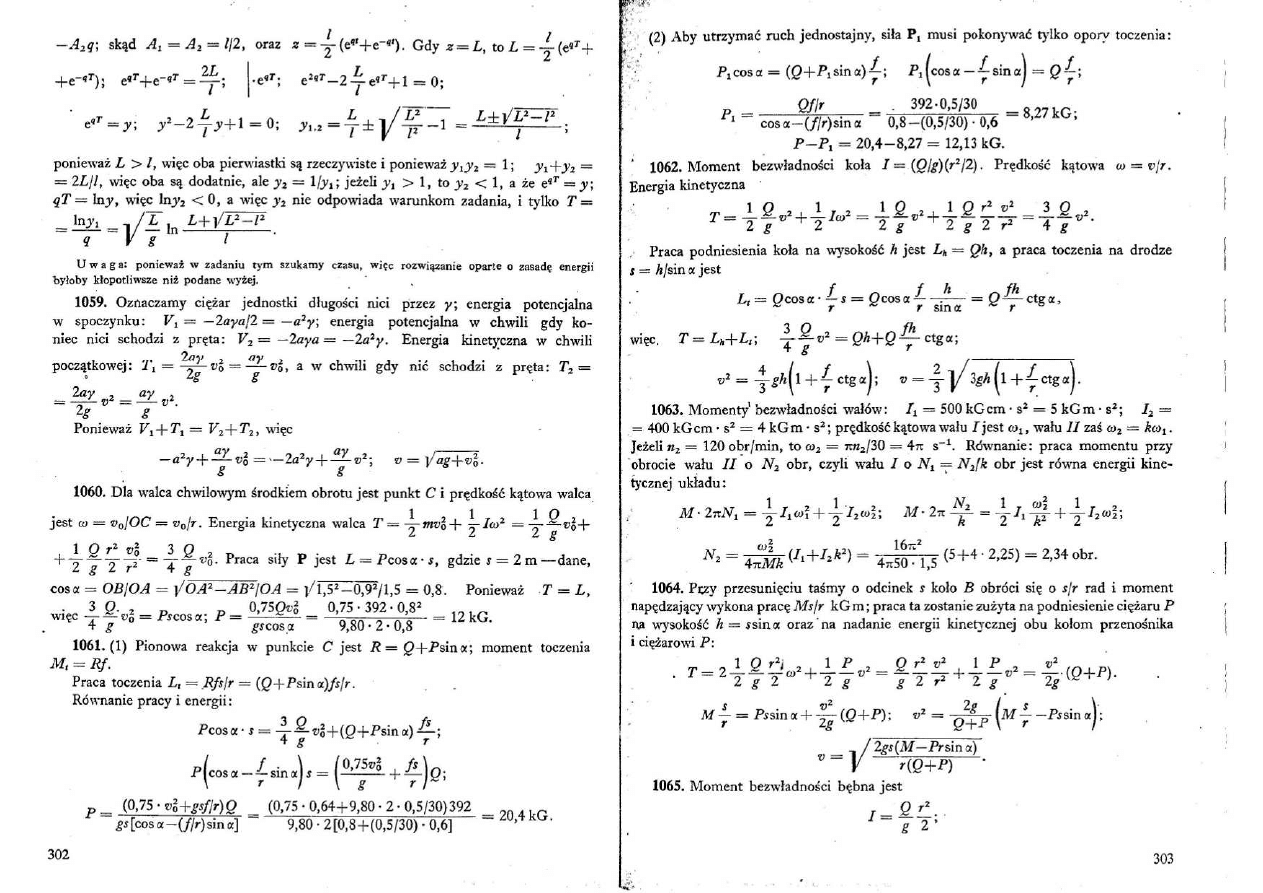 —A₂q; skąd A₁ = A₂ = l/2, oraz z = l/2 (e^{qt}+e^{-qt}). Gdy z = L, to L = l/2 (e^{qT}+
+e^{-qT}); e^{qT}+e^{-qT} = 2L/l; | ·e^{qT}; e^{2qT}—2 L/l e^{qT}+1 = 0;
e^{qT} = y; y²—2 L/l y+1 = 0; y₁.₂ = L/l ± √(L²/l² —1) = (L±√(L²—l²))/l;
ponieważ L > l, więc oba pierwiastki są rzeczywiste i ponieważ y₁y₂ = 1; y₁+y₂ =
= 2L/l, więc oba są dodatnie, ale y₂ = 1/y₁; jeżeli y₁ > 1, to y₂ < 1, a że e^{qT} = y;
qT = lny, więc lny₂ < 0, a więc y₂ nie odpowiada warunkom zadania, i tylko T =
= lny₁/q = √(L/g) ln (L+√(L²—l²))/l.
Uwaga: ponieważ w zadaniu tym szukamy czasu, więc rozwiązanie oparte o zasadę energii
byłoby kłopotliwsze niż podane wyżej.
1059. Oznaczamy ciężar jednostki długości nici przez γ; energia potencjalna
w spoczynku: V₁ = —2aγa/2 = —a²γ; energia potencjalna w chwili gdy ko-
niec nici schodzi z pręta: V₂ = —2aγa = —2a²γ. Energia kinetyczna w chwili
początkowej: T₁ = 2aγ/2g v₀² = aγ/g v₀², a w chwili gdy nić schodzi z pręta: T₂ =
= 2aγ/2g v² = aγ/g v².
Ponieważ V₁+T₁ = V₂+T₂, więc
—a²γ+ aγ/g v₀² = —2a²γ+ aγ/g v²; v = √(ag+v₀²).
1060. Dla walca chwilowym środkiem obrotu jest punkt C i prędkość kątowa walca
jest ω = v₀/OC = v₀/r. Energia kinetyczna walca T = 1/2 mv₀²+ 1/2 Iω² = 1/2 Q/g v₀²+
+ 1/2 Q/g r²/2 v₀²/r² = 3/4 Q/g v₀². Praca siły P jest L = Pcosα·s, gdzie s = 2 m — dane,
cosα = OB/OA = √(OA²—AB²)/OA = √(1,5²—0,9²)/1,5 = 0,8. Ponieważ T = L,
więc 3/4 Q/g v₀² = Pscosα; P = 0,75Qv₀²/gscosα = 0,75 · 392 · 0,8²/9,80 · 2 · 0,8 = 12 kG.
1061. (1) Pionowa reakcja w punkcie C jest R = Q+Psinα; moment toczenia
Mₜ = Rf.
Praca toczenia Lₜ = Rfs/r = (Q+Psinα)fs/r.
Równanie pracy i energii:
Pcosα · s = 3/4 Q/g v₀²+(Q+Psinα) fs/r;
P(cosα — f/r sinα) s = (0,75v₀²/g + fs/r)Q;
P = (0,75 · v₀²+gsf/r)Q / gs[cosα—(f/r)sinα] = (0,75 · 0,64+9,80 · 2 · 0,5/30)392 / 9,80 · 2[0,8+(0,5/30) · 0,6] = 20,4 kG.
302
(2) Aby utrzymać ruch jednostajny, siła P₁ musi pokonywać tylko opory toczenia:
P₁cosα = (Q+P₁sinα) f/r; P₁(cosα — f/r sinα) = Q f/r;
P₁ = Qf/r / cosα—(f/r)sinα = 392·0,5/30 / 0,8—(0,5/30) · 0,6 = 8,27 kG;
P—P₁ = 20,4—8,27 = 12,13 kG.
1062. Moment bezwładności koła I = (Q/g)(r²/2). Prędkość kątowa ω = v/r.
Energia kinetyczna
T = 1/2 Q/g v²+ 1/2 Iω² = 1/2 Q/g v²+ 1/2 Q/g r²/2 v²/r² = 3/4 Q/g v².
Praca podniesienia koła na wysokość h jest Lₕ = Qh, a praca toczenia na drodze
s = h/sinα jest
Lₜ = Qcosα · f/r s = Qcosα f/r h/sinα = Q fh/r ctgα,
więc. T = Lₕ+Lₜ; 3/4 Q/g v² = Qh+Q fh/r ctgα;
v² = 4/3 gh(1+ f/r ctgα); v = 2/3 √(3gh(1+ f/r ctgα)).
1063. Momenty bezwładności wałów: I₁ = 500 kGcm · s² = 5 kGm · s²; I₂ =
= 400 kGcm · s² = 4 kGm · s²; prędkość kątowa wału I jest ω₁, wału II zaś ω₂ = kω₁.
Jeżeli n₂ = 120 obr/min, to ω₂ = πn₂/30 = 4π s⁻¹. Równanie: praca momentu przy
obrocie wału II o N₂ obr, czyli wału I o N₁ = N₂/k obr jest równa energii kine-
tycznej układu:
M · 2πN₁ = 1/2 I₁ω₁²+ 1/2 I₂ω₂²; M · 2π N₂/k = 1/2 I₁ ω₂²/k² + 1/2 I₂ω₂²;
N₂ = ω₂²/4πMk (I₁+I₂k²) = 16π²/4π50 · 1,5 (5+4 · 2,25) = 2,34 obr.
1064. Przy przesunięciu taśmy o odcinek s koło B obróci się o s/r rad i moment
napędzający wykona pracę Ms/r kGm; praca ta zostanie zużyta na podniesienie ciężaru P
na wysokość h = ssinα oraz na nadanie energii kinetycznej obu kołom przenośnika
i ciężarowi P:
T = 2 1/2 Q/g r²/2 ω²+ 1/2 P/g v² = Q/g r²/2 v²/r² + 1/2 P/g v² = v²/2g (Q+P).
M s/r = Pssinα + v²/2g (Q+P); v² = 2g/Q+P (M s/r —Pssinα);
v = √(2gs(M—Prsinα) / r(Q+P)).
1065. Moment bezwładności bębna jest
I = Q/g r²/2;
303